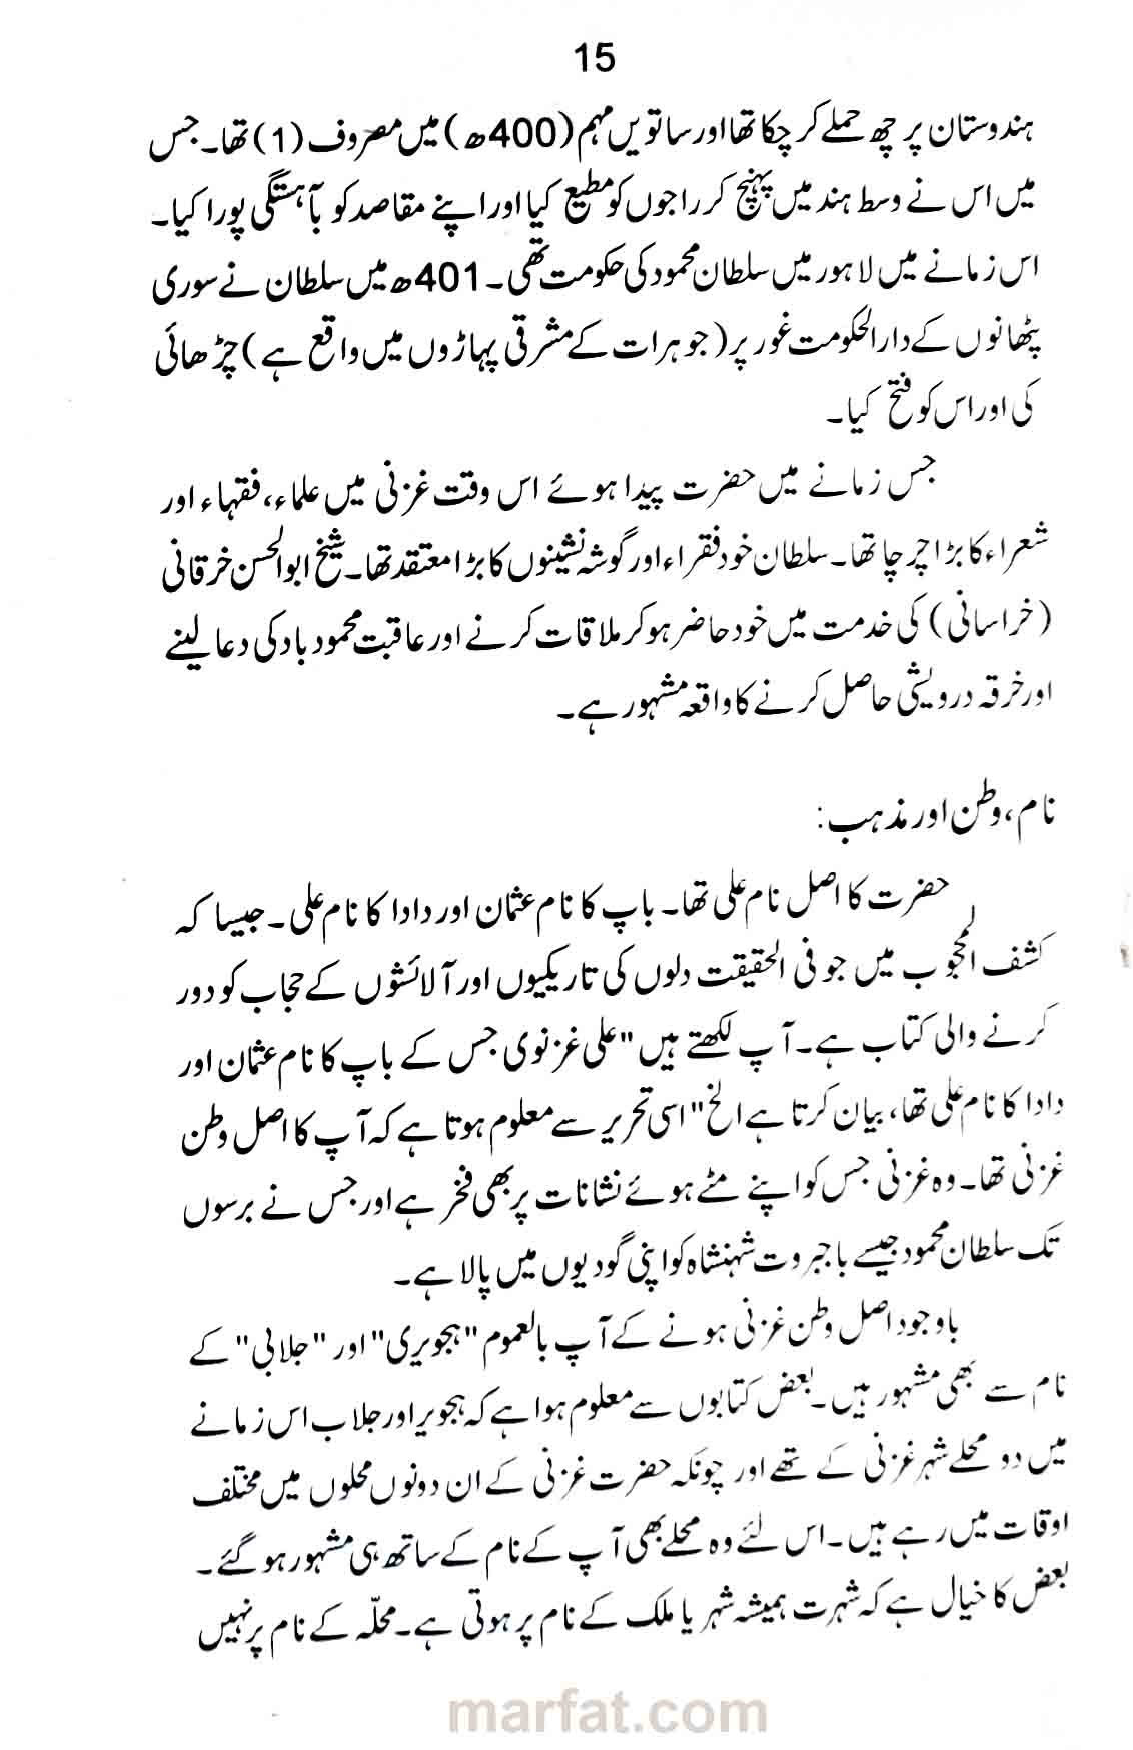 15
ہندوستان پر چھ حملے کر چکا تھا اور ساتویں مہم (400ھ) میں مصروف (1) تھا۔ جس
میں اس نے وسط ہند میں پہنچ کر راجوں کو مطیع کیا اور اپنے مقاصد کو بآہستگی پورا کیا۔
اس زمانے میں لاہور میں سلطان محمود کی حکومت تھی۔ 401ھ میں سلطان نے سوری
پٹھانوں کے دارالحکومت غور پر (جو ہرات کے مشرقی پہاڑوں میں واقع ہے) چڑھائی
کی اور اس کو فتح کیا۔
جس زمانے میں حضرت پیدا ہوئے اس وقت غزنی میں علماء، فقہاء اور
شعراء کا بڑا چرچا تھا۔ سلطان خود فقراء اور گوشہ نشینوں کا بڑا معتقد تھا۔ شیخ ابوالحسن خرقانی
(خراسانی) کی خدمت میں خود حاضر ہو کر ملاقات کرنے اور عاقبت محمود باد کی دعا لینے
اور خرقہ درویشی حاصل کرنے کا واقعہ مشہور ہے۔
نام، وطن اور مذہب:
حضرت کا اصل نام علی تھا۔ باپ کا نام عثمان اور دادا کا نام علی۔ جیسا کہ
کشف المحجوب میں جو فی الحقیقت دلوں کی تاریکیوں اور آلائشوں کے حجاب کو دور
کرنے والی کتاب ہے۔ آپ لکھتے ہیں "علی غزنوی جس کے باپ کا نام عثمان اور
دادا کا نام علی تھا، بیان کرتا ہے الخ" اسی تحریر سے معلوم ہوتا ہے کہ آپ کا اصل وطن
غزنی تھا۔ وہ غزنی جس کو اپنے مٹے ہوئے نشانات پر بھی فخر ہے اور جس نے برسوں
تک سلطان محمود جیسے باجبروت شہنشاہ کو اپنی گودیوں میں پالا ہے۔
باوجود اصل وطن غزنی ہونے کے آپ بالعموم "ہجویری" اور "جلابی" کے
نام سے بھی مشہور ہیں۔ بعض کتابوں سے معلوم ہوا ہے کہ ہجویر اور جلاب اس زمانے
میں دو محلے شہر غزنی کے تھے اور چونکہ حضرت غزنی کے ان دونوں محلوں میں مختلف
اوقات میں رہے ہیں۔ اس لئے وہ محلے بھی آپ کے نام کے ساتھ ہی مشہور ہو گئے۔
بعض کا خیال ہے کہ شہرت ہمیشہ شہر یا ملک کے نام پر ہوتی ہے۔ محلّہ کے نام پر نہیں
marfat.com